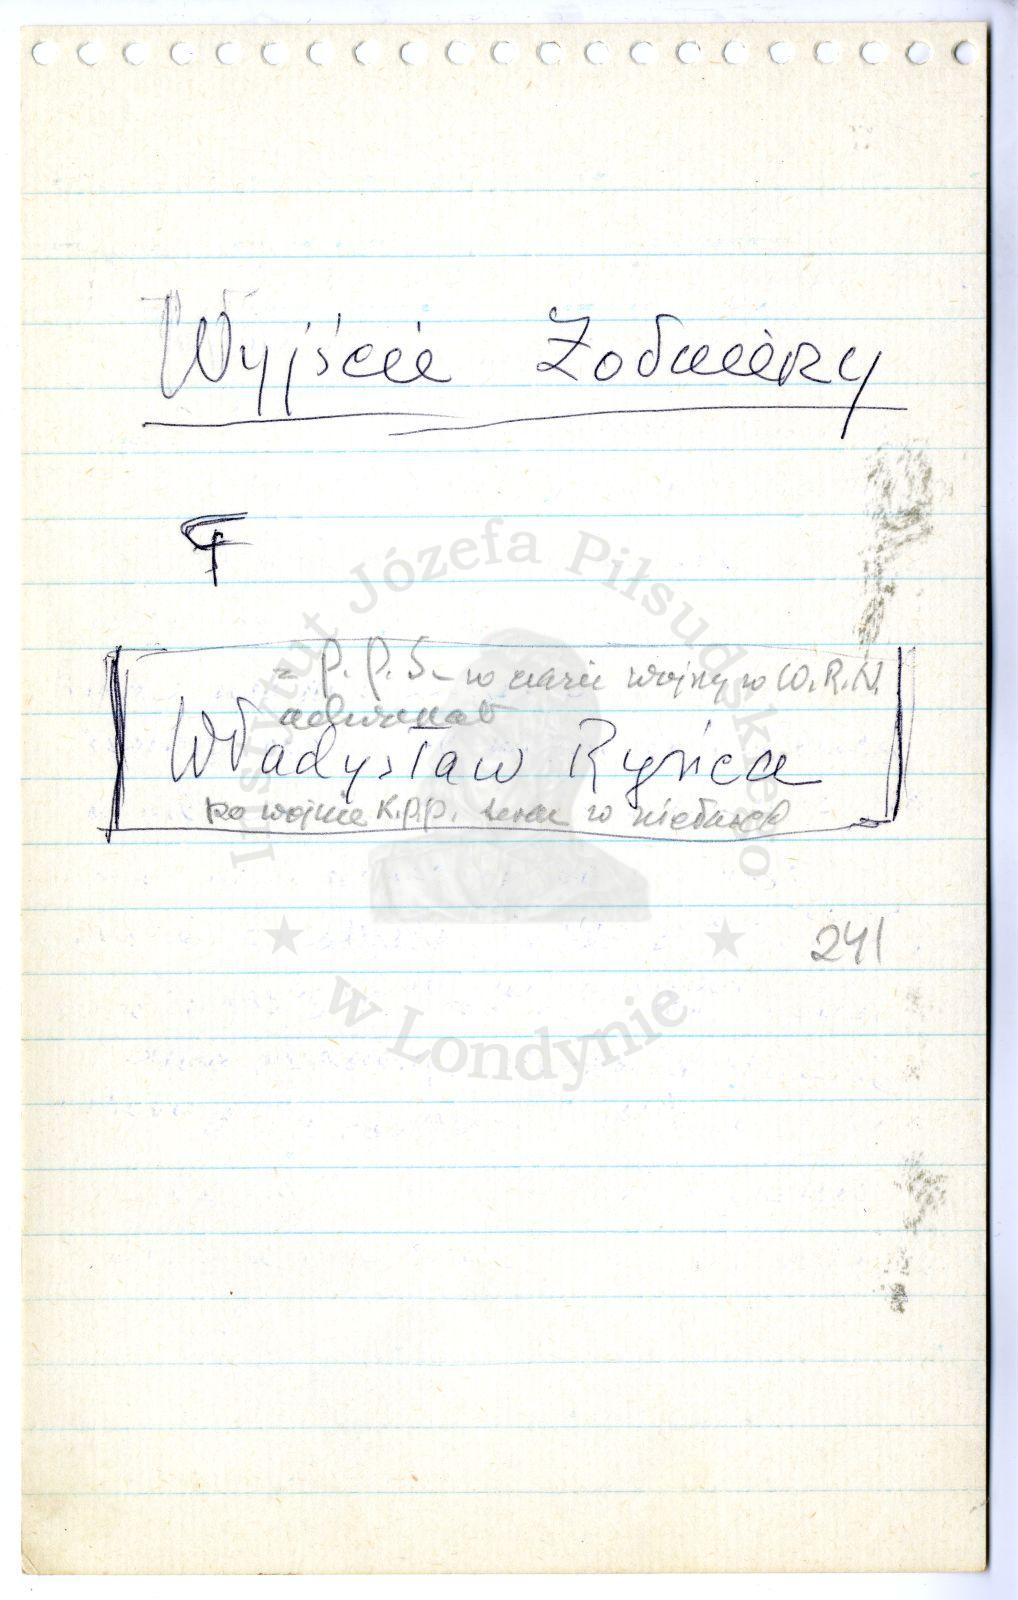 Wyjście Żołnierzy
F
z P.P.S - w czasie wojny w W.R.N.
adwokat
Władysław Rysica
po wojnie K.P.P. teraz w
241
Instytut Józefa Piłsudskiego
w Londynie